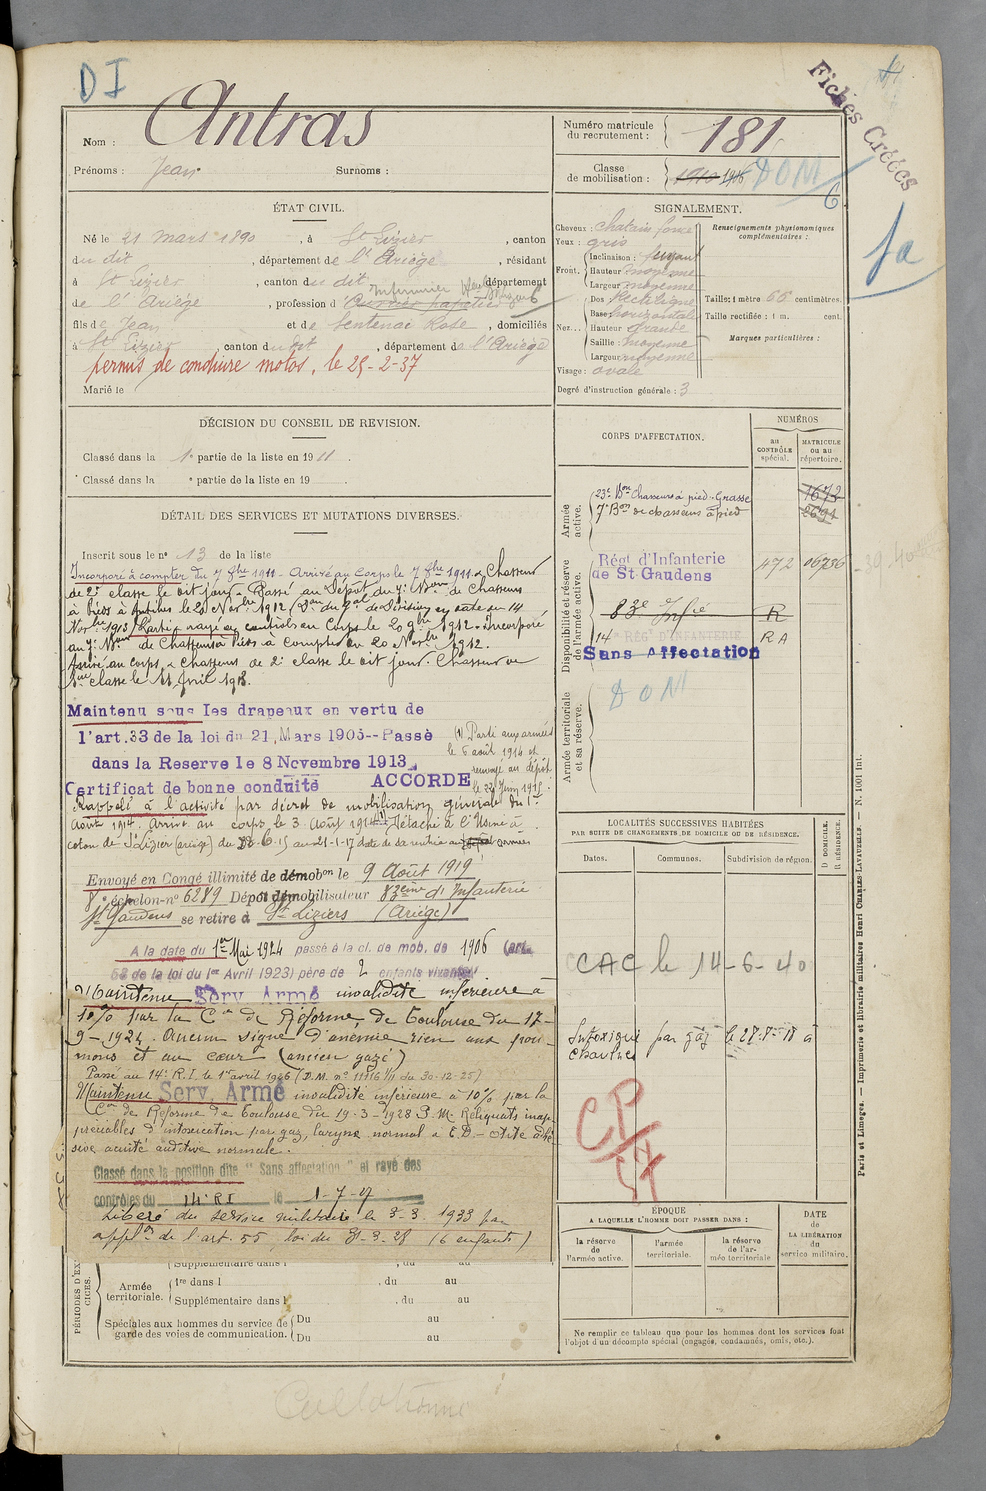 D I
Fichés Créées
1a
Nom : Antras
Prénoms : Jean Surnoms :
Numéro matricule du recrutement : 181
Classe de mobilisation : 1910 1916 DOM
6
ÉTAT CIVIL.
Né le 21 mars 1890, à St Lizier, canton
du dit, département de l'Ariège, résidant
à St Lizier, canton du dit, département
Infirmier
de l'Ariège, profession d'Ouvrier papetier
fils de Jean et de Sentenac Rose, domiciliés
à St Lizier, canton du dit, département de l'Ariège
permis de conduire motos, le 25-2-37
Marié le
SIGNALEMENT.
Cheveux : chatain foncé
Yeux : gris
Front. Inclinaison : fuyant
Hauteur moyenne
Largeur moyenne
Nez... Dos rectiligne
Base horizontale
Hauteur grande
Saillie : moyenne
Largeur moyenne
Visage : ovale
Degré d'instruction générale : 3
Renseignements physionomiques complémentaires :
Taille : 1 mètre 66 centimètres.
Taille rectifiée : 1 m. cent.
Marques particulières :
DÉCISION DU CONSEIL DE REVISION.
Classé dans la 1e partie de la liste en 1911.
Classé dans la e partie de la liste en 19 .
DÉTAIL DES SERVICES ET MUTATIONS DIVERSES.
Inscrit sous le n° 13 de la liste
Incorporé à compter du 7 8bre 1911 - Arrivé au Corps le 7 8bre 1911 & Chasseur
de 2e classe le dit jour - Passé au Dépôt du 7e Bon de Chasseurs
à Pieds à Antibes le 20 Novbre 1912 (Don du Gal de Division en date du 14
Novbre 1913) Parti - rayé des contrôles du Corps le 20 9bre 1912. Incorporé
au 7e Bon de Chasseurs à Pieds à compter du 20 Novbre 1912.
Arrivé au corps & Chasseur de 2e classe le dit jour. Chasseur de
1ère classe le 11 Avril 1913.
Maintenu sous les drapeaux en vertu de
l'art. 33 de la loi du 21 Mars 1905--Passé
dans la Reserve le 8 Novembre 1913
Certificat de bonne conduite ACCORDE
(1) Parti aux armées
le 6 août 1914 et
renvoyé au dépôt
le 22 Juin 1915.
Rappelé à l'activité par décret de mobilisation générale du 1er
Août 1914. Arrivé au corps le 3 Août 1914 (1) Détaché à l'Usine à
coton de St Lizier (Ariège) du 22.6.15 au 21-1-17 date de sa rentrée au dépôt armées
Envoyé en Congé illimité de démobon le 9 Août 1919
8e échelon-n° 6289 Dépôt démobilisateur 83ème d'Infanterie
St Gaudens se retire à St Liziers (Ariège)
A la date du 1er Mai 1924 passé à la cl. de mob. de 1906 (art.
58 de la loi du 1er Avril 1923) père de 2 enfants vivants
Maintenu Serv. Armé invalidité inférieure à
10% par la Con de Réforme de Toulouse du 17-
9-1924. Aucun signe d'anémie rien aux pou-
mons et au cœur (ancien gazé)
Passé au 14e R.I. le 1er avril 1926 (D.M. n° 11116 1/1 du 30-12-25)
Maintenu Serv. Armé invalidité inférieure à 10% par la
Con de Réforme de Toulouse du 19-3-1928 P.M. Reliquats inap-
préciables d'intoxication par gaz, larynx normal à C.D. - Otite adhé-
sive acuité auditive normale.
Classé dans la position dite "Sans affectation" et rayé des
contrôles du 14e RI le 1-7-27
Libéré du service militaire le 3-3-1933 par
applon de l'art. 55, loi du 31-3-28 (6 enfants)
CORPS D'AFFECTATION.
NUMÉROS
au CONTRÔLE spécial.
MATRICULE ou au répertoire.
Armée active.
23e Bon Chasseurs à pied - Grasse 1673
7e Bon de chasseurs à pied 2691
Disponibilité et réserve de l'armée active.
Régt d'Infanterie
de St-Gaudens 472 06736
83e Infie R
14e RÉGt D'INFANTERIE RA
Sans Affectation
Armée territoriale et sa réserve.
DOM
LOCALITÉS SUCCESSIVES HABITÉES
PAR SUITE DE CHANGEMENTS DE DOMICILE OU DE RÉSIDENCE.
Dates. Communes. Subdivision de région.
D DOMICILE. R RÉSIDENCE.
CAC le 14-6-40
Intoxiqué par gaz le 27-7-18 à
Chaulnes
CP
ÉPOQUE
A LAQUELLE L'HOMME DOIT PASSER DANS :
la réserve de l'armée active.
l'armée territoriale.
la réserve de l'armée territoriale
DATE de LA LIBÉRATION du service militaire.
Ne remplir ce tableau que pour les hommes dont les services font
l'objet d'un décompte spécial (engagés, condamnés, omis, etc.).
PÉRIODES D'EXERCICES.
Supplémentaire dans l , du au
Armée territoriale. 1re dans l , du au
Supplémentaire dans l , du au
Spéciales aux hommes du service de garde des voies de communication. Du au
Du au
Paris et Limoges. — Imprimerie et librairie militaires Henri CHARLES-LAVAUZELLE. — N. 1001 Int.